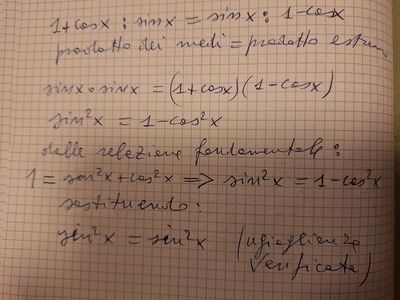 1+cosx : sinx = sinx : 1-cosx
prodotto dei medi = prodotto estremi
sinx • sinx = (1+cosx)(1-cosx)
sin²x = 1-cos²x
dalla relazione fondamentale:
1 = sen²x+cos²x => sin²x = 1-cos²x
sostituendo:
sin²x = sin²x (uguaglianza
verificata)